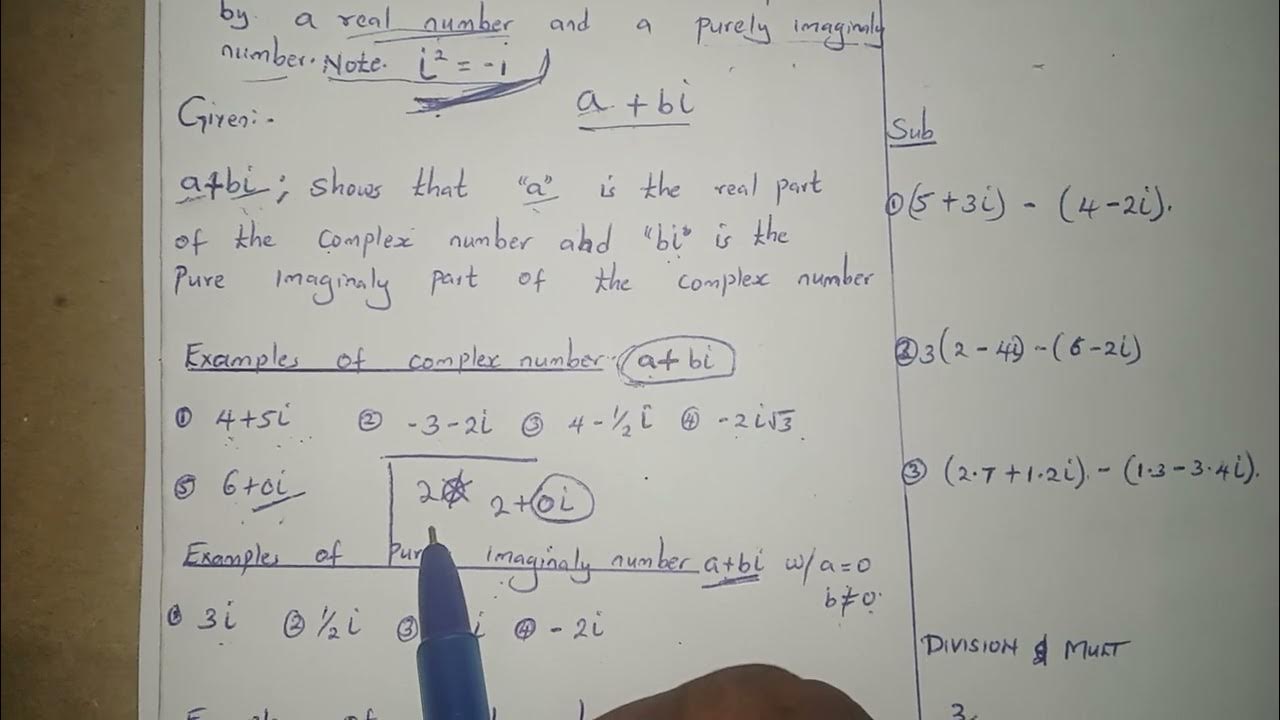 by a real number and a purely imaginaly
number. Note. i² = -i
Given:-
a + bi
a+bi ; shows that "a" is the real part
of the complex number and "bi" is the
Pure imaginaly part of the complex number
Examples of complex number. a+bi
① 4+5i ② -3-2i ③ 4-1/2i ④ -2i√3
⑤ 6+0i
2 2+0i
Examples of imaginaly number a+bi w/ a=0
b≠0
① 3i ② 1/2i ③ i ④ -2i
Sub
① (5+3i) - (4-2i).
② 3(2-4i) - (6-2i)
③ (2.7+1.2i) - (1.3-3.4i).
DIVISION & MULT